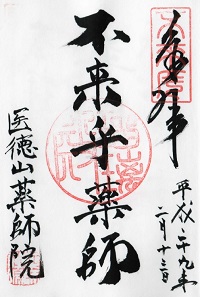 奉拝
平成二十九年
二月十三日
不来乎薬師
医徳山薬師院